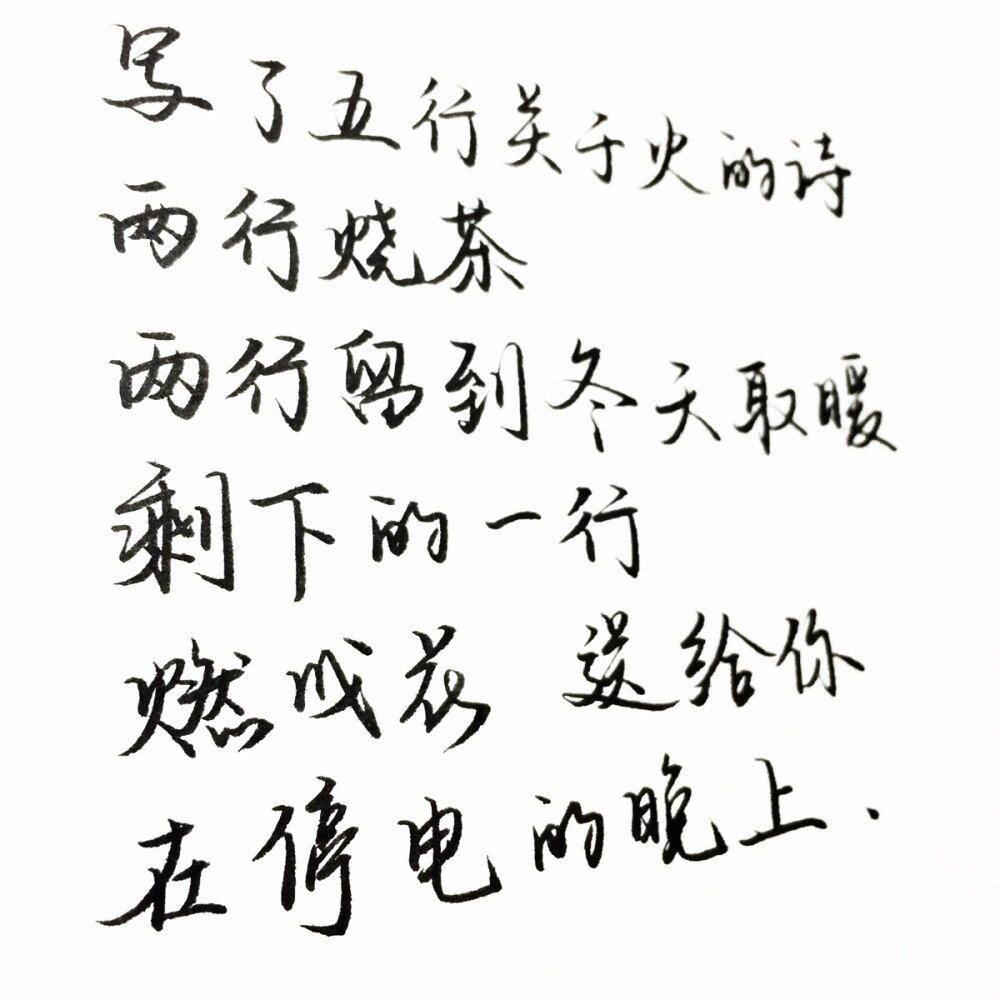 写了五行关于火的诗
两行烧茶
两行留到冬天取暖
剩下的一行
燃成花 送给你
在停电的晚上.